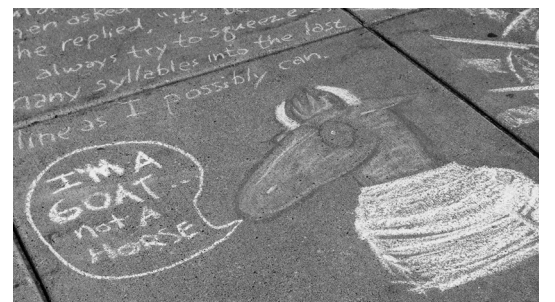 hen asked
he replied, "it's
always try to squeeze as
many syllables into the last
line as I possibly can.
I'M A
GOAT..
not A
HORSE